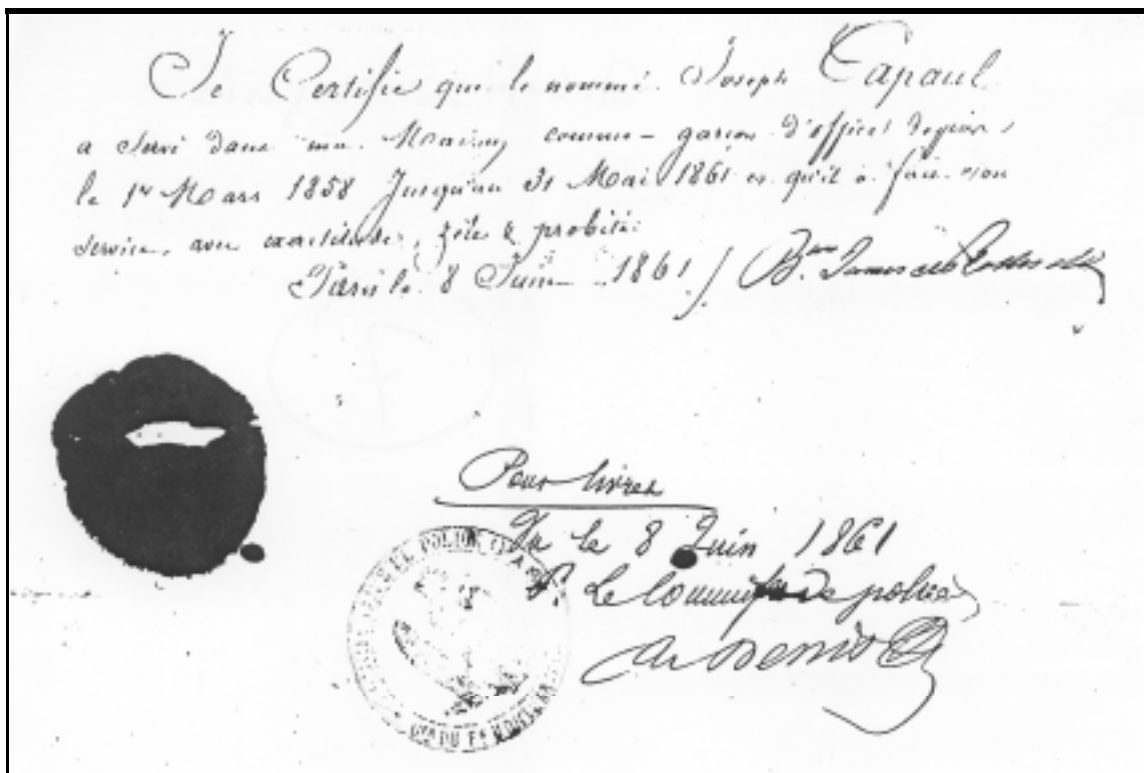 Je Certifie que le nommé Joseph Capaul
a servi dans ma Maison comme garçon d'office depuis
le 1er Mars 1858 Jusqu'au 31 Mai 1861 et qu'il a fait son
service avec exactitude, zèle & probité.
Paris le 8 Juin 1861 / Bon James de Rothschild
Pour livret
Vu le 8 Juin 1861
P. Le Commissre de police
POLICE
DU F.G MONTMAR